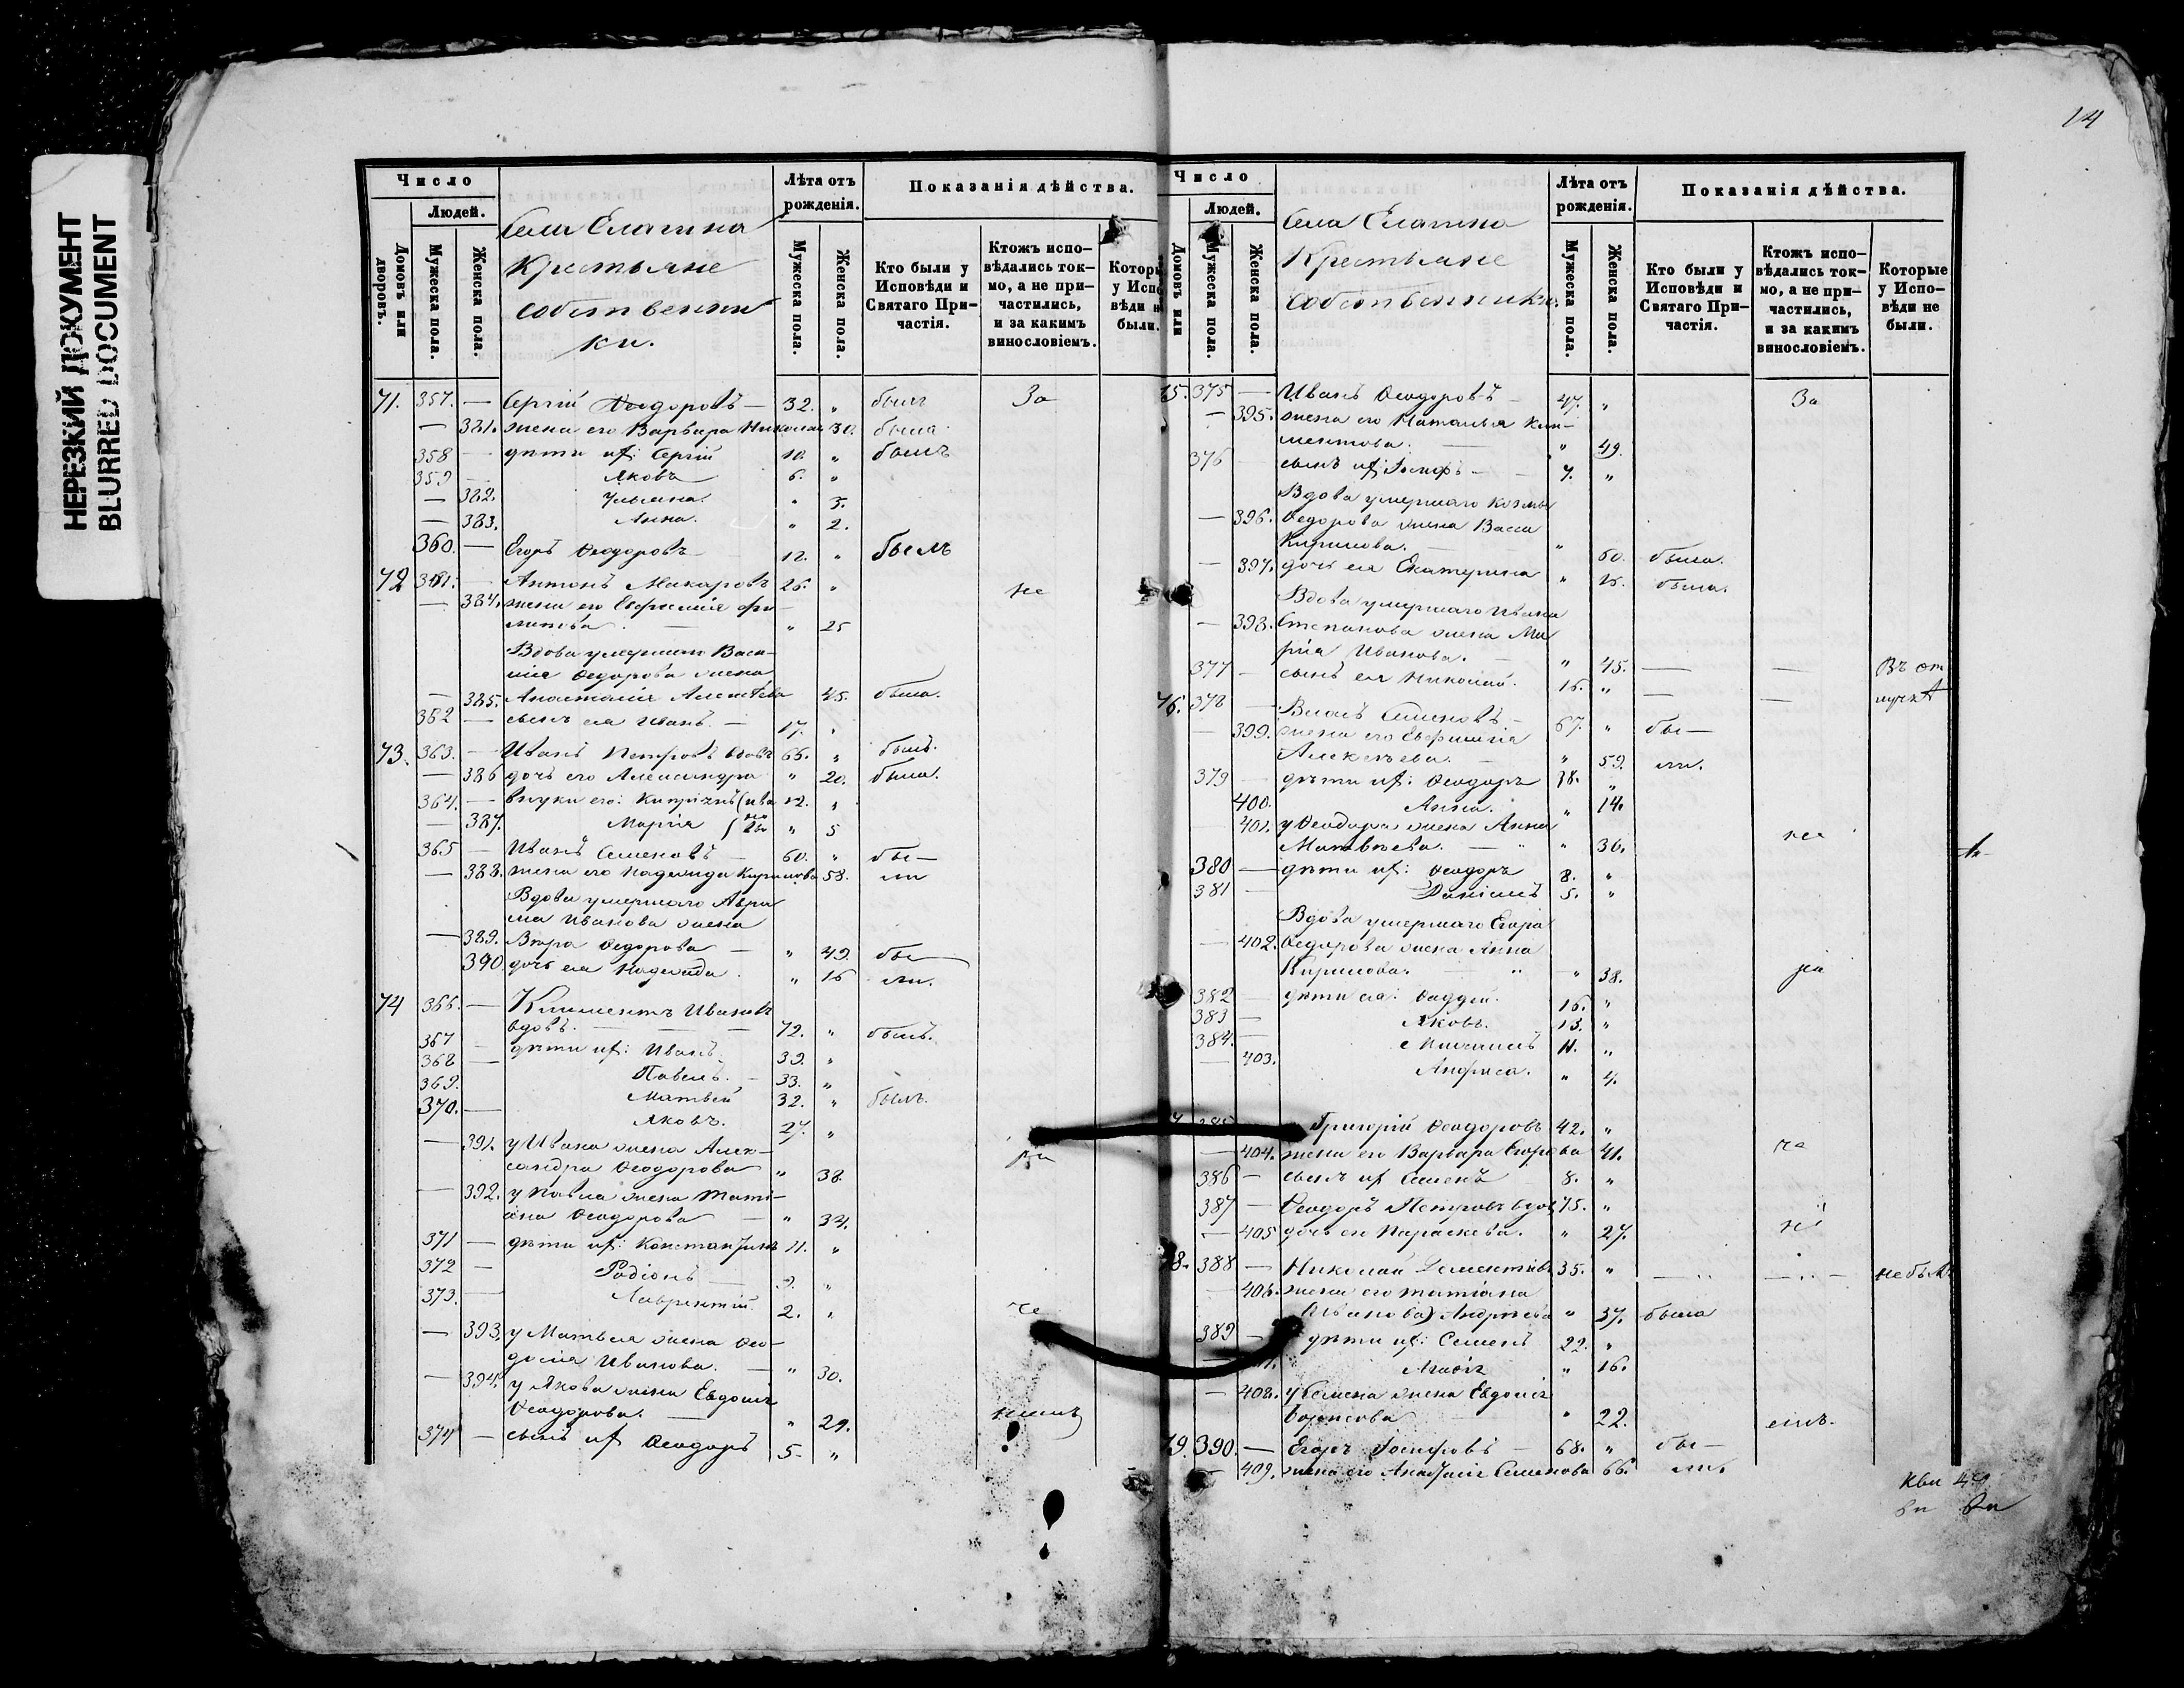 НЕРЕЗКИЙ ДОКУМЕНТ
BLURRED DOCUMENT
Число
Людей.
Домовъ или дворовъ.
Мужеска пола.
Женска пола.
Села Елагина
Крестьяне
собственни
ки.
Лѣта отъ рожденія.
Мужеска пола.
Женска пола.
Показанія дѣйства.
Кто были у Исповѣди и Святаго Причастія.
Ктожъ исповѣдались токмо, а не причастились, и за какимъ винословіемъ.
71. 357. — Сергій Ѳеодоровъ — 32. „ былъ За
— 381. жена его Варвара Николаи 30. была
358 — дѣти их: Сергій 10. „ былъ
359 — Яковъ 6. „
— 382. Ульяна. „ 3.
— 383. Анна. „ 2.
360. — Егоръ Ѳеодоровъ 12. „ былъ
72 361. — Антонъ Макаровъ 26. „ не
— 384. жена его Евфимія Фи-
липова. — „ 25
Вдова умершаго Васи-
лія Ѳедорова жена
— 385. Анастасія Алексѣева 45. была.
362 — сынъ ея Иванъ. — 17. „
73. 363. — Иванъ Петровъ вдовъ 65. „ былъ.
— 386 дочь его Александра „ 20. была.
364. — внуки его: 12. „
— 387. Марія „ 5
365 — Иванъ Семеновъ — 60. „ бы—
— 388. жена его Надежда Кирилова 58. ли
Вдова умершаго Авра
ма Иванова жена
— 389. Вѣра Ѳедорова — „ 49. бы—
390. дочь ея Надежда. „ 16 ли.
74 366. — Климентъ Ивановъ
вдовъ. — — 72. „ былъ.
367 — дѣти их: Иванъ 39. „
368 — Павелъ. — 33. „
369. Матвей 32. „ былъ.
370. — Яковъ. 27. „
— 391. у Ивана жена Алек-
сандра Ѳеодорова „ 38.
— 392. у Павла жена Тати-
ана Ѳеодорова — „ 34.
371 — дѣти их: Константинъ 11. „
372 — Родіонъ — 9. „
373. — Лаврентій. 2. „ че
— 393. у Матвея жена Ѳео-
досія Иванова. — „ 30.
— 394. у Якова жена Евдокія
Ѳеодорова. — „ 29.
374 — сынъ их Ѳеодоръ 5. „
14
Число
Людей.
Домовъ или
Мужеска пола.
Женска пола.
Села Елагина
Крестьяне
собственники.
Лѣта отъ рожденія.
Мужеска пола.
Женска пола.
Показанія дѣйства.
Кто были у Исповѣди и Святаго Причастія.
Ктожъ исповѣдались токмо, а не причастились, и за какимъ винословіемъ.
Которые у Исповѣди не были.
75. 375 — Иванъ Ѳеодоровъ — 47. „ За
— 395. жена его Наталья Кли-
ментова. — „ 49.
376 — сынъ их: Іосифъ — 7. „
Вдова умершаго Козмы
— 396. Ѳедорова жена Васса
Кирилова. — „ 60. была.
— 397. дочь ея Екатерина „ была.
Вдова умершаго Ивана
— 398. Степанова жена Ма
рія Иванова. — „ 45. — — Въ от
377 — сынъ ея Николай. 16. „ — — лучкѣ
76. 378 — Власъ Семеновъ — 67. „ бы—
— 399. жена его Евфимія
Алексѣева. — „ 59. ли.
379 — дѣти их: Ѳеодоръ 38. „
400. Анна. „ 14.
401. у Ѳеодора жена Анна
Матвѣева. — „ 36. не
380 — дѣти их: Ѳеодоръ 8. „
381 — Даніилъ 5. „
Вдова умершаго Егора
— 402. Ѳедорова жена Анна
Кирилова. — „ 38.
382 — дѣти ея: Ѳаддей. 16. „
383 — Яковъ. 13. „
384. — Михаилъ 11. „
— 403. Анфиса. „ 4.
Григорій Ѳеодоровъ 42. „
— 404. жена его Варвара Егорова 41. че
386 — сынъ их Семенъ 8. „
387 — Ѳеодоръ Петровъ вдов 75. „
— 405 дочь его Параскева. „ 27.
78. 388 — Николай Дементіев 35. „ — — не былъ
— 406. жена его Татіана
Иванова) Андреева „ 37. была
389 — дѣти их: Семенъ 22. „
„ 16.
— 408. у Семена жена Евдокія
Борисова „ 22.
79. 390. — Егоръ Іосифовъ — 68. „ бы—
— 409. жена его Анастасія Семенова 66. ли.